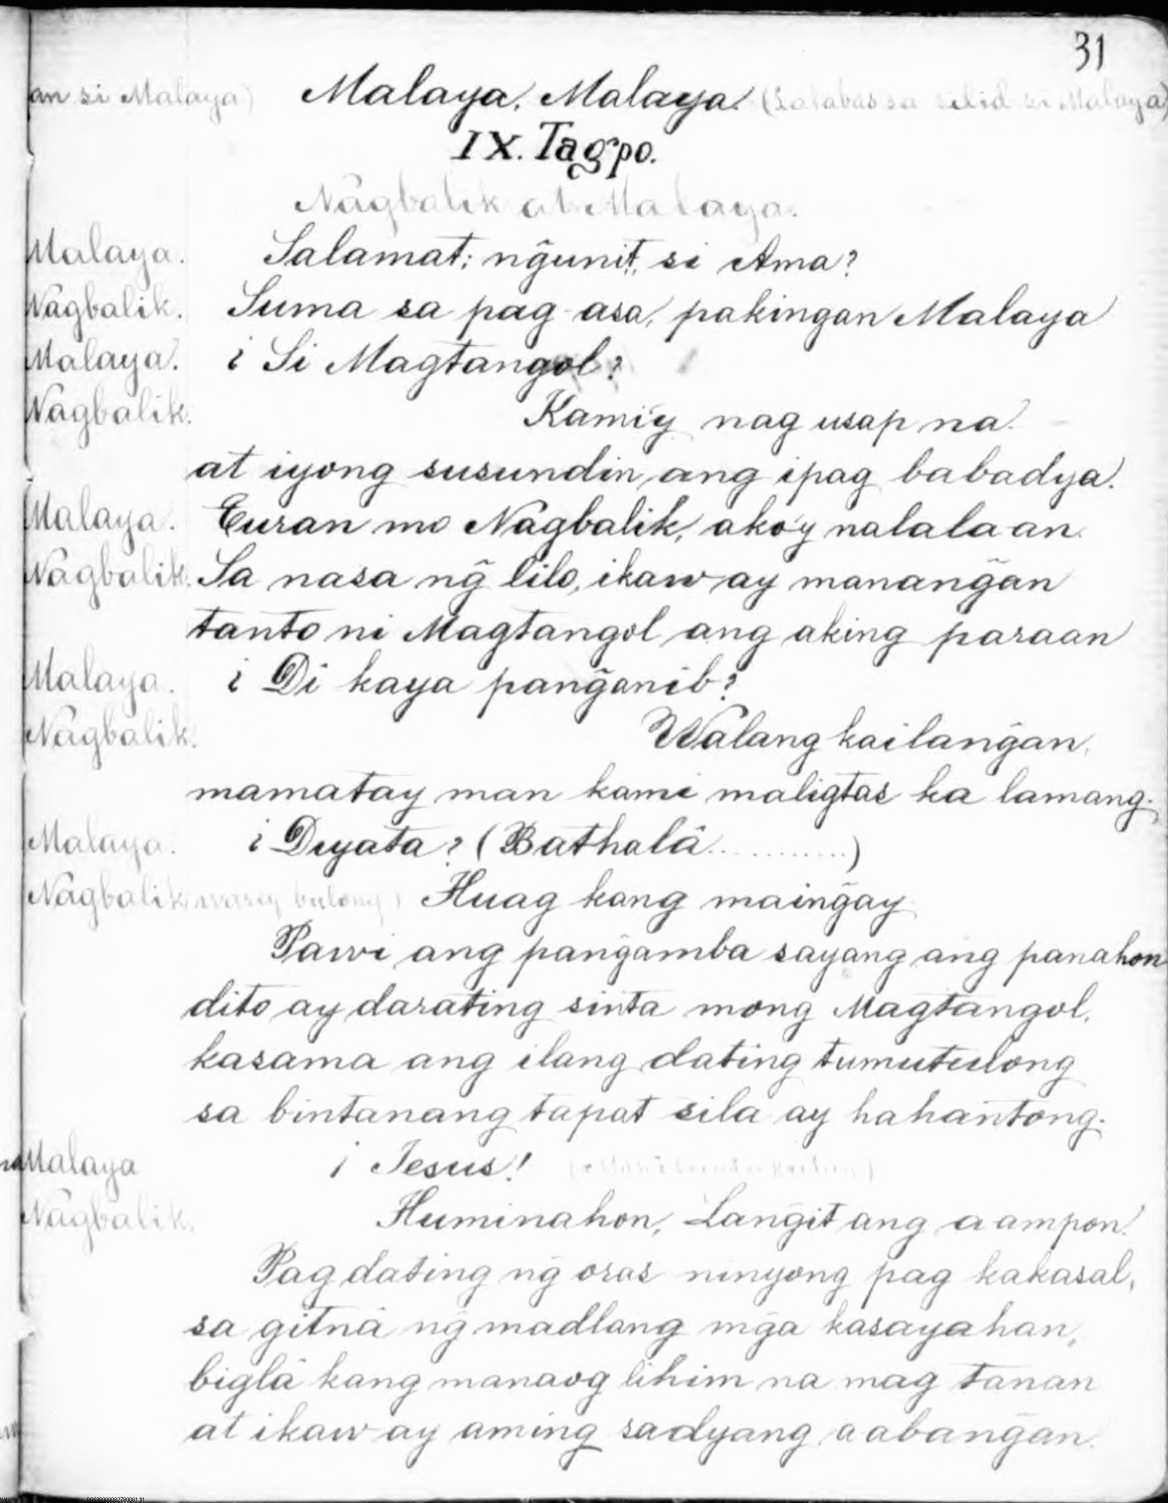 31
an si Malaya) Malaya, Malaya! (Lalabas sa silid si Malaya)
IX. Tagpo.
Nagbalik at Malaya.
Malaya. Salamat; ng̃unit, si Ama?
Nagbalik. Suma sa pag-asa, pakingan Malaya
Malaya. ¿ Si Magtangol?
Nagbalik. Kami'y nag usap na.
at iyong susundin ang ipag babadya.
Malaya. Turan mo Nagbalik, ako'y nalala-an.
Nagbalik. Sa nasa ng̃ lilo, ikaw ay manang̃an
tanto ni Magtangol ang aking paraan
Malaya. ¿ Di kaya pang̃anib?
Nagbalik. Walang kailang̃an,
mamatay man kami maligtas ka lamang.
Malaya. ¿ Diyata? (Bathalâ...........)
Nagbalik bulong) Huag kang maing̃ay
Pawi ang pang̃amba sayang ang panahon
dito ay darating sinta mong Magtangol,
kasama ang ilang dating tumutulong
sa bintanang tapat sila ay hahantong.
Malaya ¡ Jesus!
Nagbalik. Huminahon, Lang̃it ang aampon.
Pagdating ng̃ oras ninyong pag kakasal,
sa gitnâ ng̃ madlang mg̃a kasayahan,
biglâ kang manaog lihim na mag tanan
at ikaw ay aming sadyang aabang̃an.